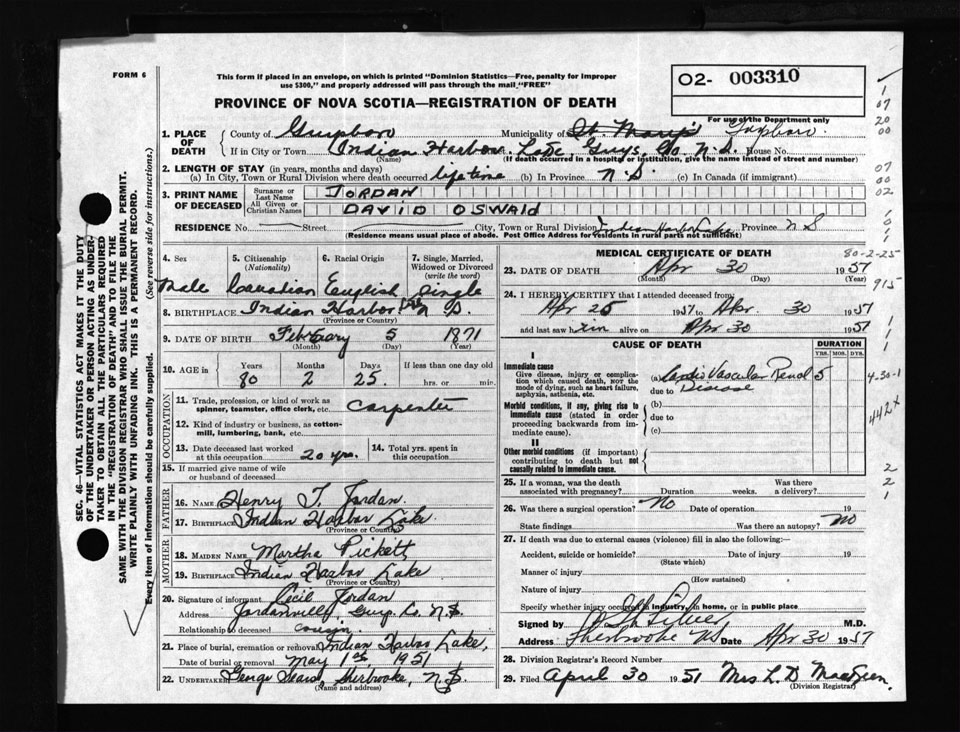 FORM 6
This form if placed in an envelope, on which is printed "Dominion Statistics—Free, penalty for improper
use $300," and properly addressed will pass through the mail "FREE"
O2- 003310
PROVINCE OF NOVA SCOTIA—REGISTRATION OF DEATH
For use of the Department only
1. PLACE OF DEATH
County of Municipality of St. Mary's
If in City or Town Indian Harbor Lake, Guys. Co. N.S. House No.
(Name) (If death occurred in a hospital or institution, give the name instead of street and number)
2. LENGTH OF STAY (in years, months and days)
(a) In City, Town or Rural Division where death occurred life time (b) In Province N.S. (c) In Canada (if immigrant)
3. PRINT NAME OF DECEASED
Surname or Last Name JORDAN
All Given or Christian Names DAVID OSWAld
RESIDENCE No. Street City, Town or Rural Division Indian Harbor Lake Province N S
(Residence means usual place of abode. Post Office Address for residents in rural parts not sufficient)
4. Sex 5. Citizenship (Nationality) 6. Racial Origin 7. Single, Married, Widowed or Divorced (write the word)
Male Canadian English Single
8. BIRTHPLACE Indian Harbor N S.
(Province or Country)
9. DATE OF BIRTH February 5 1871
(Month) (Day) (Year)
10. AGE in Years Months Days If less than one day old
80 2 25. hrs. or min.
OCCUPATION
11. Trade, profession or kind of work as
spinner, teamster, office clerk, etc. carpenter
12. Kind of industry or business, as cotton-
mill, lumbering, bank, etc.
13. Date deceased last worked
at this occupation 20 yrs.
14. Total yrs. spent in
this occupation
15. If married give name of wife
or husband of deceased
FATHER
16. NAME Henry T. Jordan.
17. BIRTHPLACE Indian Harbor Lake
(Province or Country)
MOTHER
18. MAIDEN NAME Martha Pickett
19. BIRTHPLACE Indian Harbor Lake
(Province or Country)
20. Signature of informant Cecil Jordan
Address Jordanville, Guys. Co. N.S.
Relationship to deceased cousin.
21. Place of burial, cremation or removal Indian Harbor Lake,
Date of burial or removal May 1st, 1951
22. UNDERTAKER George Sears, Sherbrooke, N.S.
(Name and address)
MEDICAL CERTIFICATE OF DEATH
80-2-25
23. DATE OF DEATH Apr 30 1951
(Month) (Day) (Year)
915
24. I HEREBY CERTIFY that I attended deceased from:
Apr 25 1951 to Apr. 30 1951
and last saw him alive on Apr 30 1951
CAUSE OF DEATH
DURATION
YRS. MOS. DYS.
I
Immediate cause
Give disease, injury or compli-
cation which caused death, NOT the
mode of dying, such as heart failure,
asphyxia, asthenia, etc.
(a) Cardio Vascular Renal 5
due to Disease
4-30-1
Morbid conditions, if any, giving rise to
immediate cause (stated in order
proceeding backwards from im-
mediate cause).
(b)
due to
(c)
442X
II
Other morbid conditions (if important)
contributing to death but not
causally related to immediate cause.
25. If a woman, was the death
associated with pregnancy? Duration weeks. Was there
a delivery?
26. Was there a surgical operation? No Date of operation 19
State findings Was there an autopsy? No
27. If death was due to external causes (violence) fill in also the following:—
Accident, suicide or homicide? Date of injury 19
(State which)
Manner of injury
(How sustained)
Nature of injury
Specify whether injury occurred in industry, in home, or in public place
Signed by M.D.
Address Sherbrooke NS Date Apr 30 1951
28. Division Registrar's Record Number
29. Filed April 30 1951 Mrs L. D.
(Division Registrar)
SEC. 46—VITAL STATISTICS ACT MAKES IT THE DUTY
OF THE UNDERTAKER OR PERSON ACTING AS UNDER-
TAKER TO OBTAIN ALL THE PARTICULARS REQUIRED
IN THE "REGISTRATION OF DEATH" AND TO FILE THE
SAME WITH THE DIVISION REGISTRAR WHO SHALL ISSUE THE BURIAL PERMIT.
WRITE PLAINLY WITH UNFADING INK. THIS IS A PERMANENT RECORD.
Every item of information should be carefully supplied. (See reverse side for instructions.)